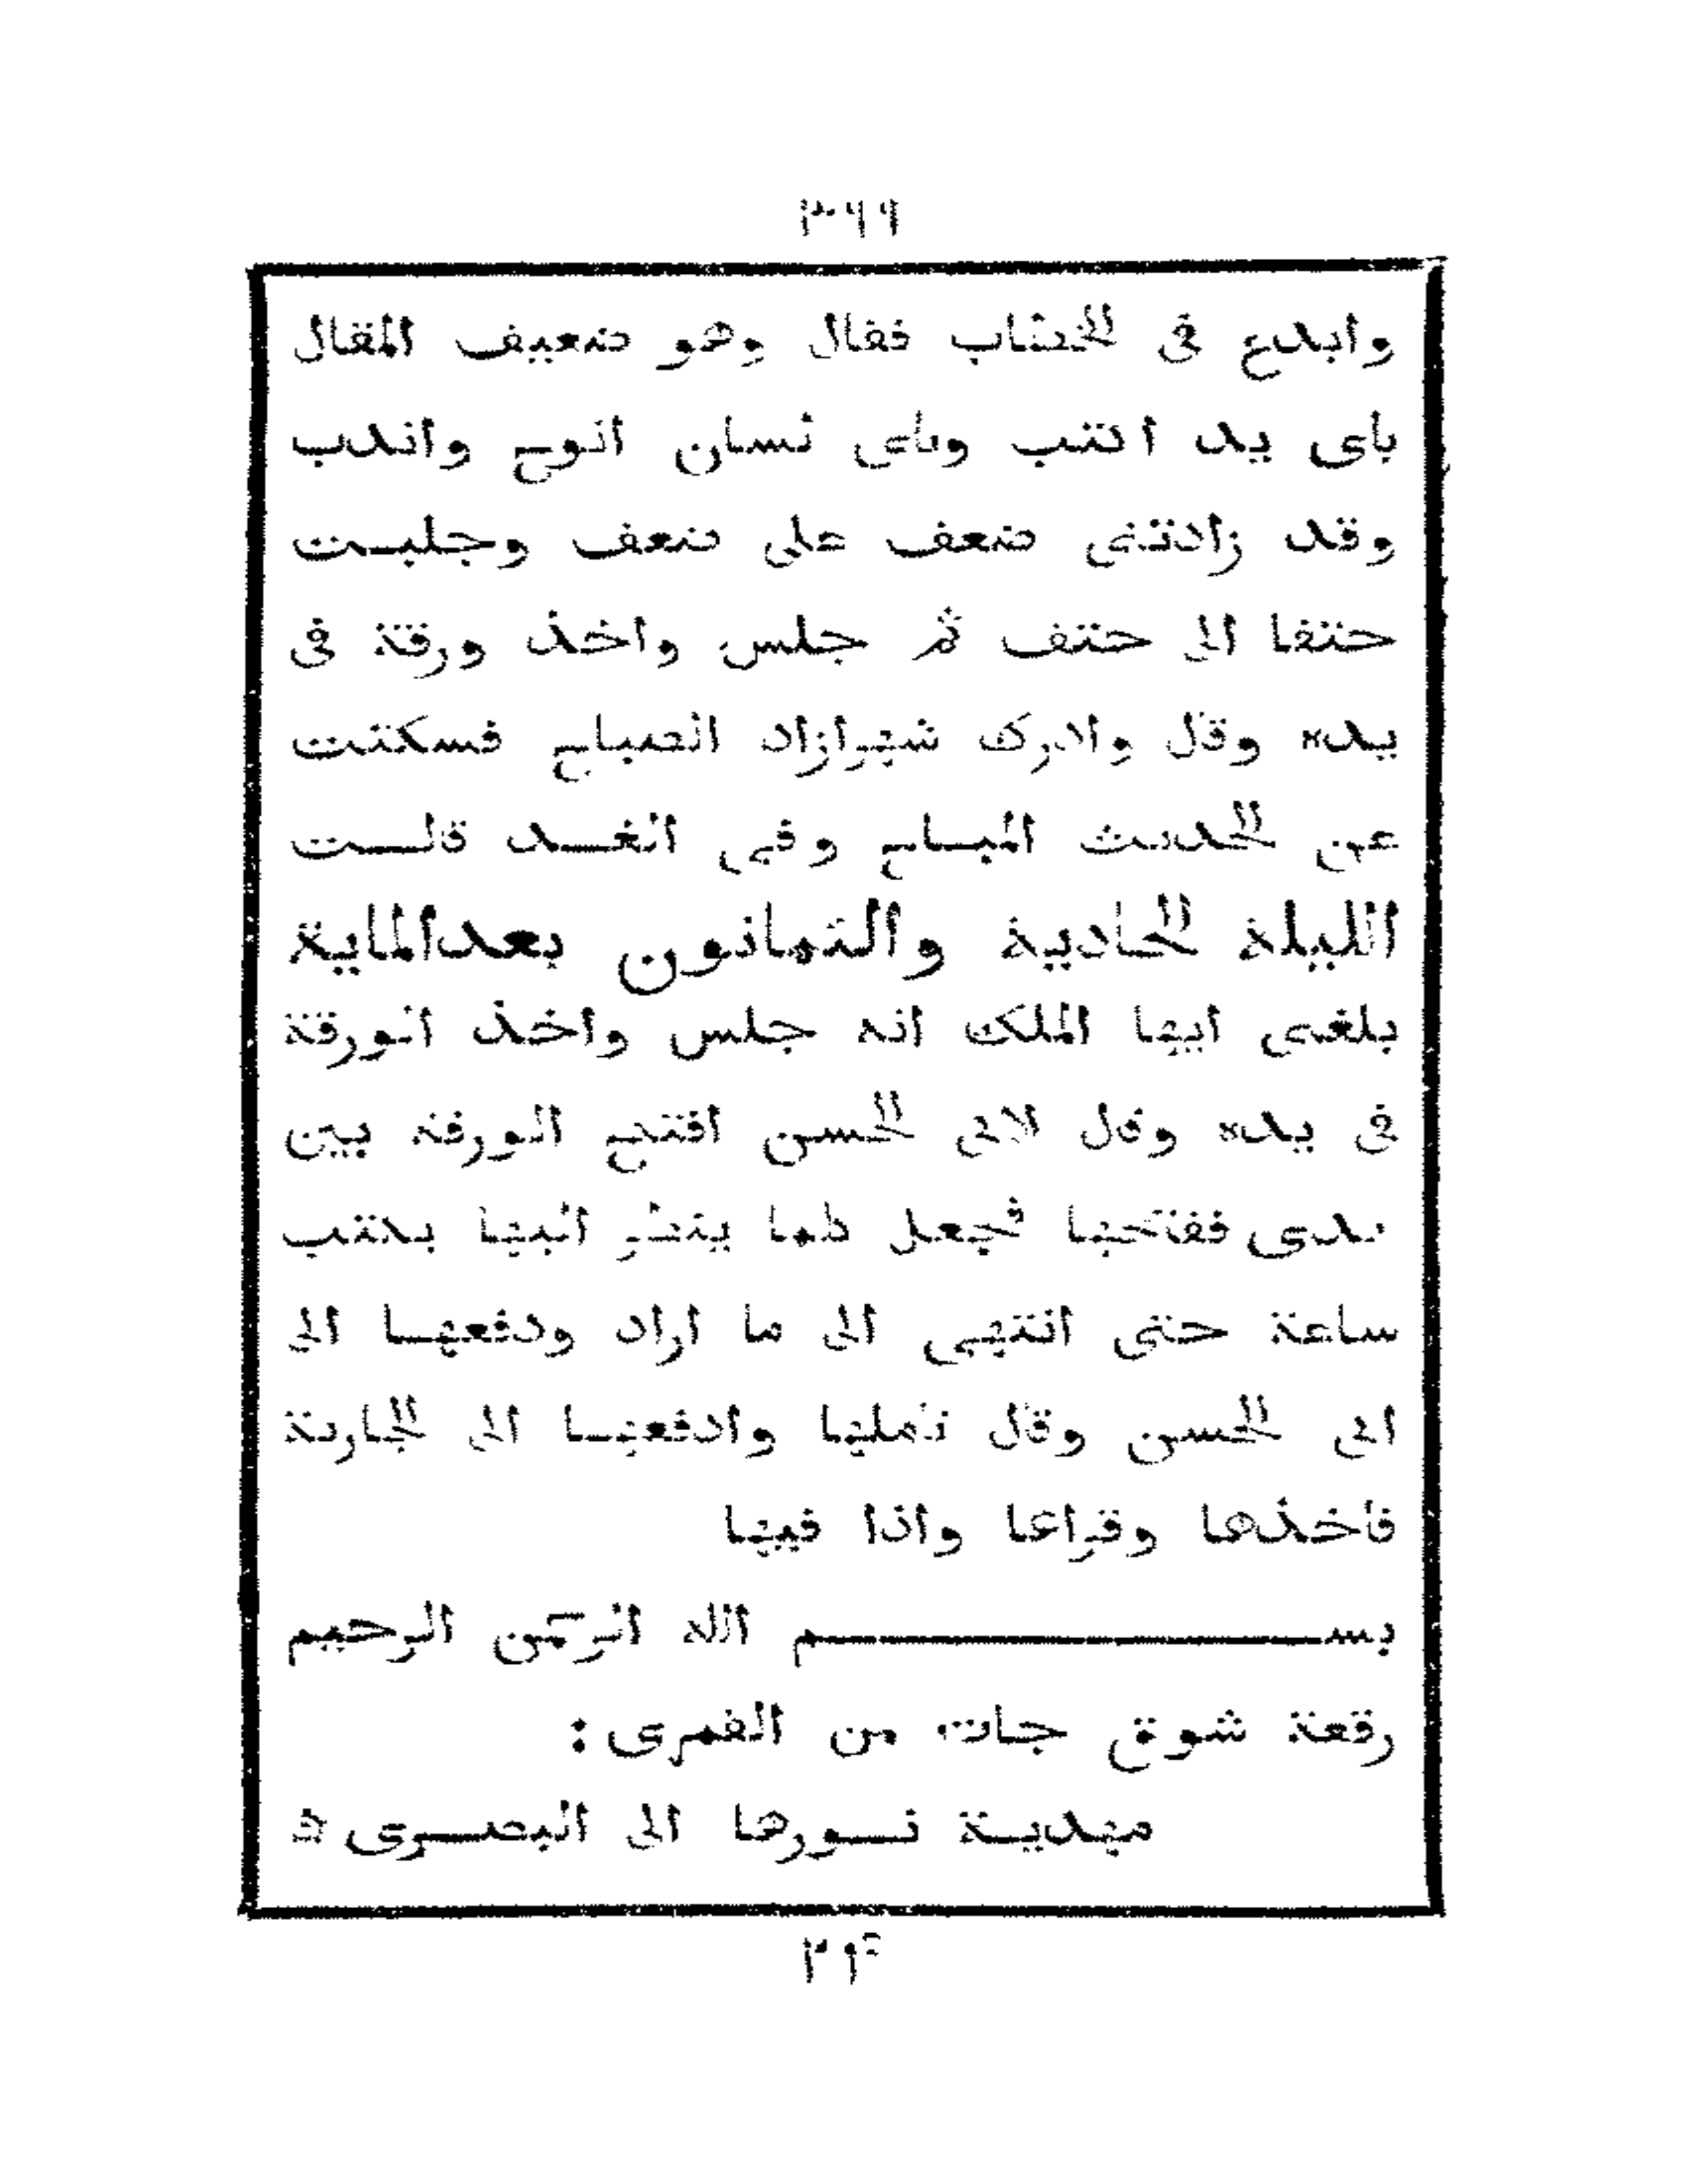 ٣٦٩
وابدع فى الخطاب فقال وهو ضعيف المقال
باى يد اكتب وباى لسان انوح واندب
وقد زادتنى ضعف على ضعف وجلبت
حتفا الى حتف ثم جلس واخذ ورقة فى
يده وقال وادرك شهرازاد الصباح فسكتت
عن الحديث المباح وفى الغد قالت
الليلة الحادية والثمانون بعد الماية
بلغنى ايها الملك انه جلس واخذ الورقة
فى يده وقال لابى الحسن افتح الورقة بين
يدى ففتحها فجعل كلما ينظر اليها يكتب
ساعة حتى انتهى الى ما اراد ودفعها الى
ابى الحسن وقال تاملها وادفعها الى الجارية
فاخذها وقراها واذا فيها
بسم الله الرحمن الرحيم
رقعة شوق جات من القمرى :
مهدية نورها الى البصرى ۞